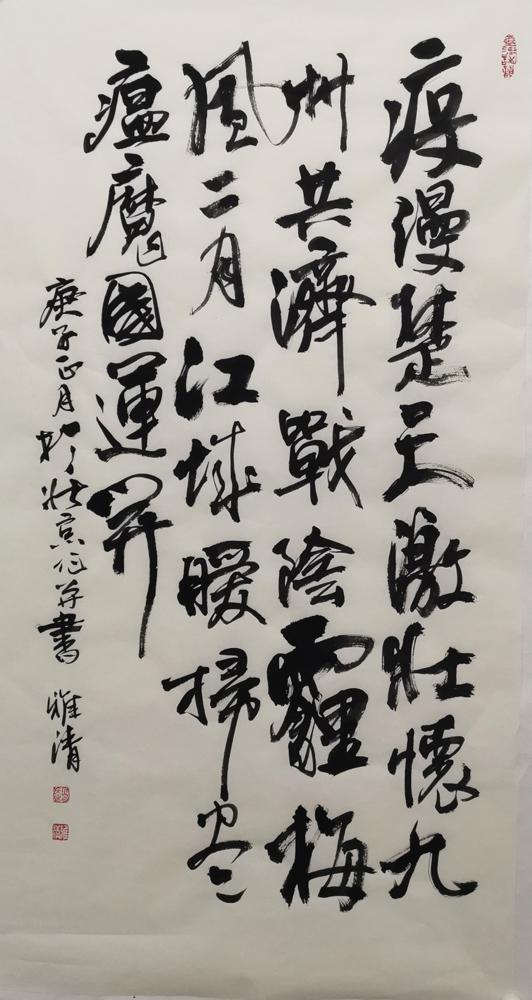 疫漫楚天激壮懷九
州共濟戰陰霾梅
風二月江城暖掃尽
瘟魔國運开
庚子正月於北京作并書 雅清